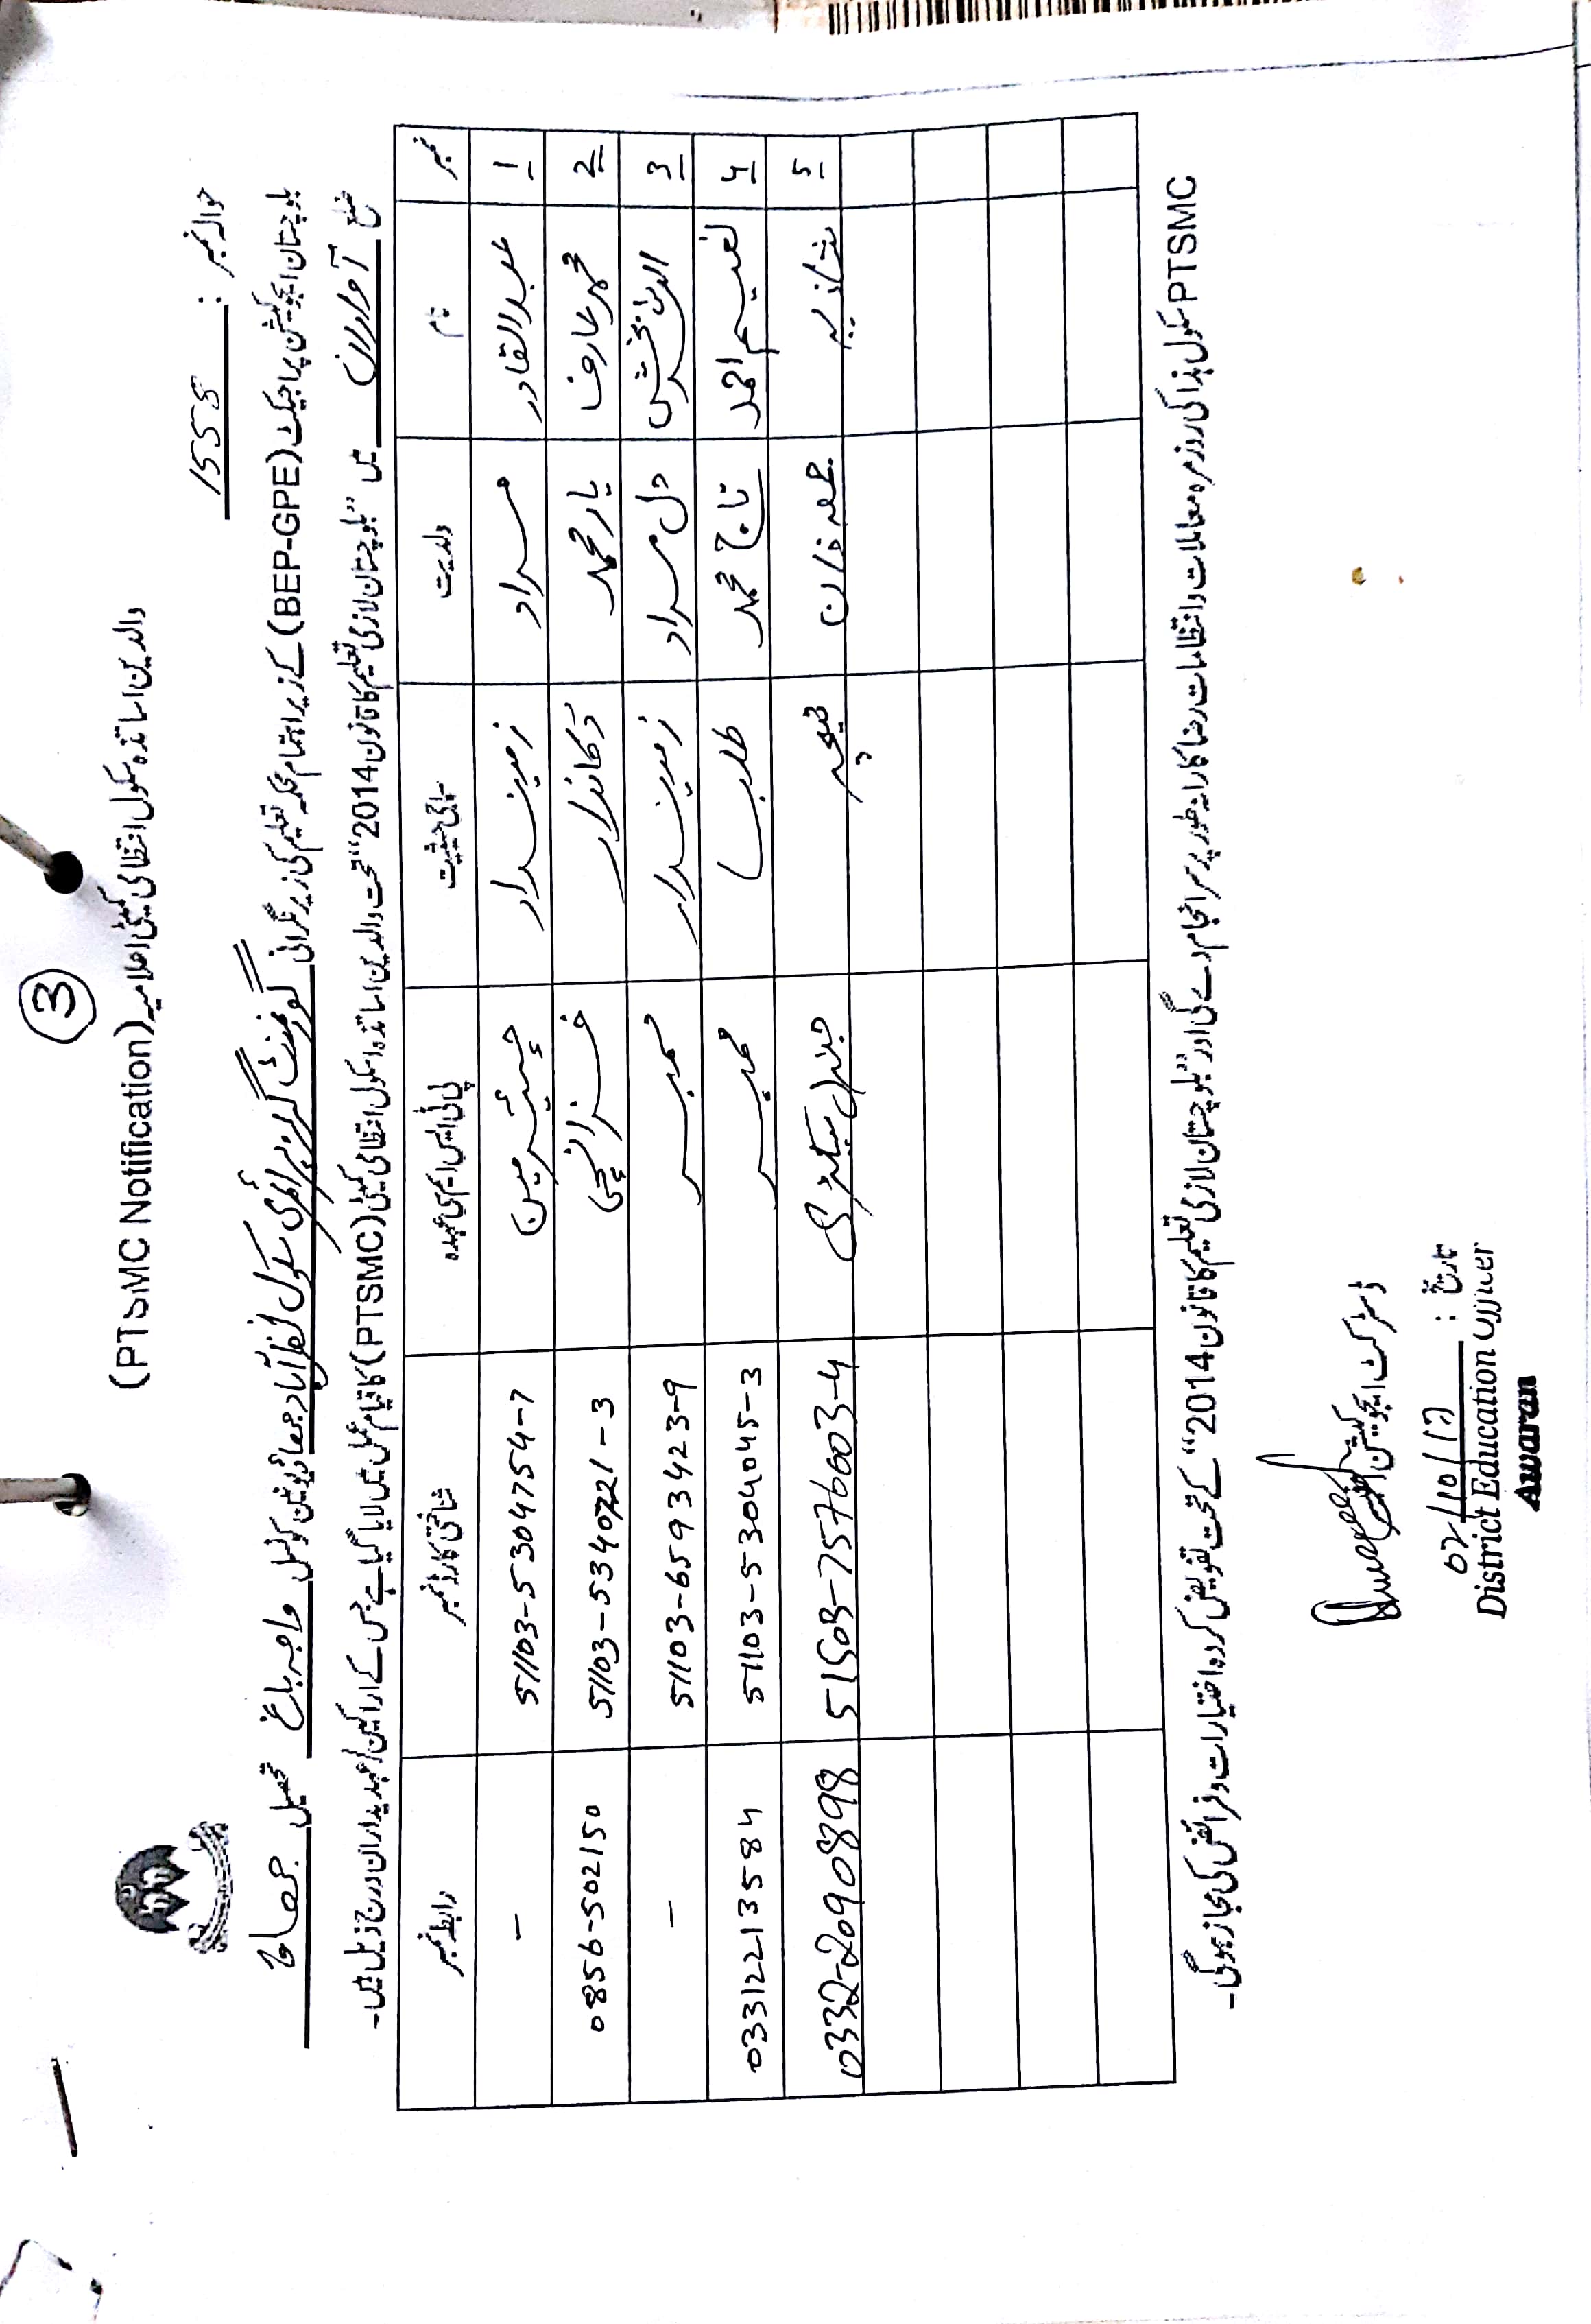 3
والدین اساتذہ سکول انتظامی کمیٹی اعلامیہ (PTSMC Notification)
حوالہ نمبر : 1555
بلوچستان ایجوکیشن پراجیکٹ (BEP-GPE) کے زیر اہتمام محکمہ تعلیم کی زیر نگرانی گورنمنٹ گرلز پرائمری سکول آباد جھاؤ یونین کونسل واجہ باغ تحصیل جھاؤ
ضلع آواران میں "بلوچستان لازمی تعلیم کا قانون 2014" تحت والدین اساتذہ اسکول انتظامی کمیٹی (PTSMC) کا قیام عمل میں لایا گیا ہے جس کے اراکین / عہدیداران درج ذیل ہیں۔
نمبر نام ولدیت سماجی حیثیت پی ٹی ایس ایم سی عہدہ شناختی کارڈ نمبر رابطہ نمبر
1 عبدالقادر مراد زمیندار چیئرمین 51103-5304754-7 -
2 محمد عارف یار محمد دکاندار خزانچی 51103-5340721-3 0856-502150
3 الہی بخش دل مراد زمیندار ممبر 51103-6593423-9 -
4 نعیم احمد تاج محمد طلب ممبر 51103-5304045-3 03312213584
5 شازیہ جمعہ خان ٹیچر جنرل سیکریٹری 51503-7576603-4 0332-2090898
PTSMC سکول ہذا کی روزمرہ معاملات و انتظامات رضاکارانہ طور پر سرانجام دے گی اور "بلوچستان لازمی تعلیم کا قانون 2014" کے تحت تفویض کردہ اختیارات و فرائض کی مجاز ہوگی۔
ڈسٹرکٹ ایجوکیشن آفیسر
تاریخ : 02/10/17
District Education Officer
Awaran